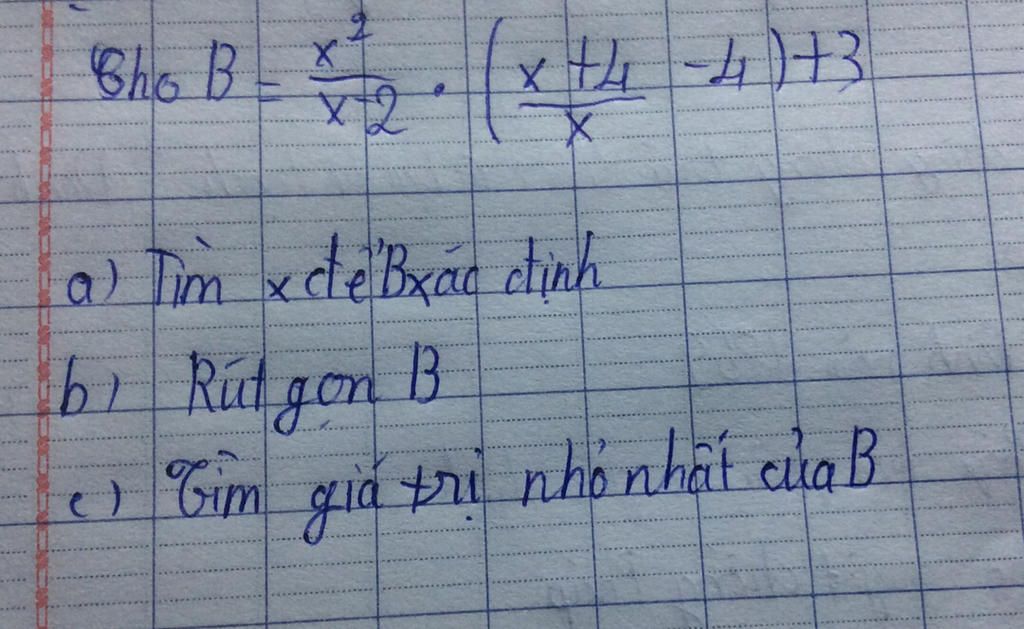 Cho B = x²/(x-2) . ((x+4)/x - 4) + 3
a) Tìm x để B xác định
b) Rút gọn B
c) Tìm giá trị nhỏ nhất của B